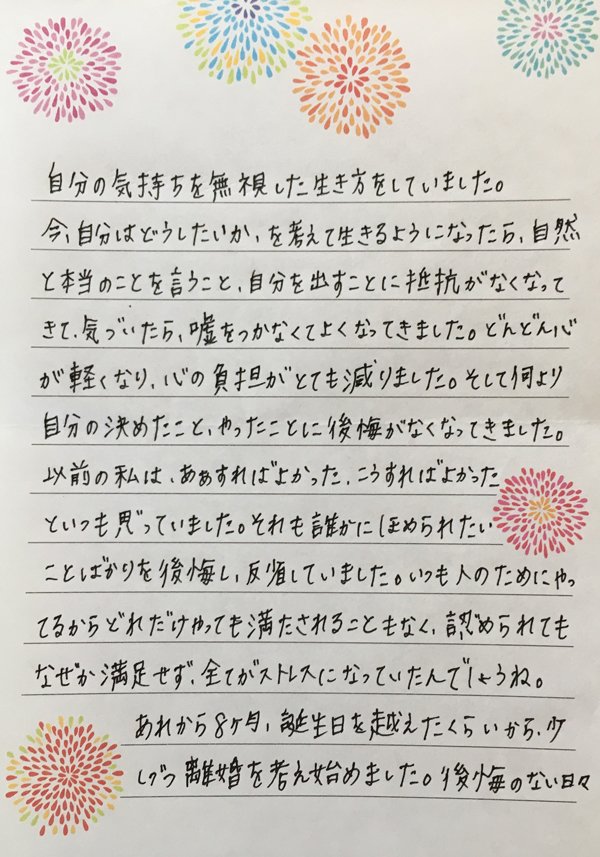 自分の気持ちを無視した生き方をしていました。
今、自分はどうしたいか、を考えて生きるようになったら、自然
と本当のことを言うこと、自分を出すことに抵抗がなくなって
きて、気づいたら、嘘をつかなくてよくなってきました。どんどん心
が軽くなり、心の負担がとても減りました。そして何より
自分の決めたこと、やったことに後悔がなくなってきました。
以前の私は、あぁすればよかった、こうすればよかった
といつも思っていました。それも誰かにほめられたい
ことばかりを後悔し、反省していました。いつも人のためにやっ
てるからどれだけやっても満たされることもなく、認められても
なぜか満足せず、全てがストレスになっていたんでしょうね。
あれから8ヶ月、誕生日を越えたくらいから、少
しづつ離婚を考え始めました。後悔のない日々